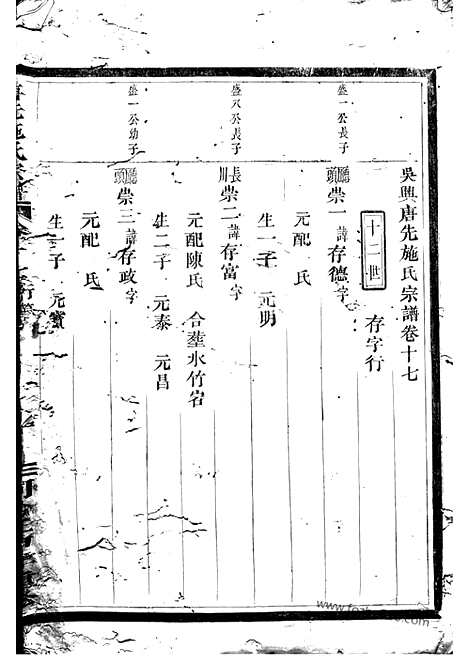 吳興唐先施氏宗譜卷十七
十二世 存字行
盛一公長子
廳頭 崇一 諱存德字
元配 氏
生一子 元明
盛八公長子
崇二 諱存富字
元配陳氏 合塟氷竹宕
生二子 元泰 元昌
盛一公幼子
廳頭 崇三 諱存政字
元配 氏
生一子 元寶